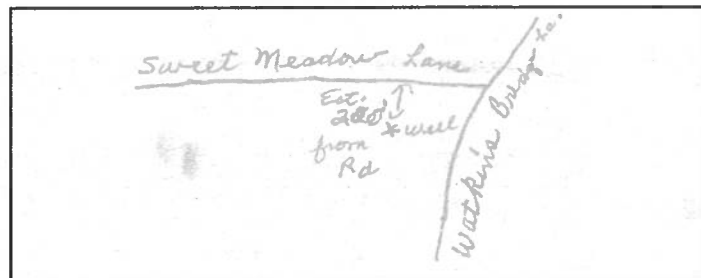 Sweet Meadow Lane
Est.
from
Rd
* well
Watkins Bridge